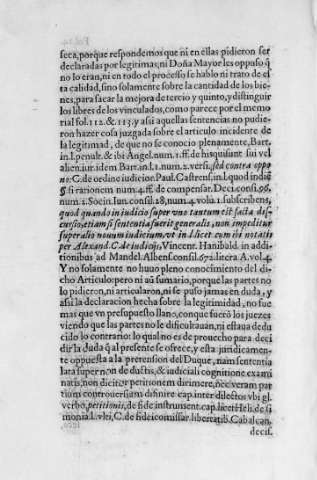 seca, porque respondemos que ni en ellas pidieron ser
declaradas por legitimas, ni Doña Mayor les oppuso q̃
no lo eran, ni en todo el processo se hablo ni trato de es
ta calidad, sino solamente sobre la cantidad de los bie-
nes, para sacar la mejora de tercio y quinto, y distinguir
los libres de los vinculados, como parece por el memo
rial fol. 112. & 113. y assi aquellas sentencias no pudie-
ron hazer cosa juzgada sobre el articulo incidente de
la legitimad, de que no se conocio plenamente, Bart.
in l. penult. & ibi Angel. num. 1. ff. de his qui sunt sui vel
alien. iur. idem Bart. in l. 1. num. 2. vers. sed contra oppo
no: C. de ordine iudicior. Paul. Castrens. in l. quod indiẽ
§. si rationem num. 4. ff. de compensar. Deci. cons. 96.
num. 1. Socin. Iun. consil. 28. num. 4. volu. 1. subscribens,
quod quando in iudicio super vno tantum est facta dis-
cussio etiam si sententia fuerit generalis, non impeditur
super alio nouum iudicium, vt in l. licet cum ibi notatis
per Alexand. C. de iudicijs, Vincent. Hanibald. in addi-
tionibus ad Mandel. Albens. consil. 672. litera A. vol. 4.
Y no solamente no huuo pleno conocimiento del di-
cho Articulo: pero ni aũ sumario, porque las partes no
lo pidieron, ni articularon, ni se puso jamas en duda, y
assi la declaracion hecha sobre la legitimidad, no fue
mas que vn presupuesto llano, con que fuerõ los juezes
viendo que las partes no le dificultauan, ni estaua dedu
cido lo contrario: lo qual no es de prouecho para deci
dir la duda q̃ al presente se ofrece, y esta juridicamen-
te oppuesta a la pretension del Duque, nam sententia
lata super non de ductis, & iudiciali cognitione exami
natis, non dicitur petitionem dirimere, nec veram par
tium controuersiam difinire cap. inter dilectos vbi gl.
verbo, petitionis, de fide instrument. cap. licet Heli. de si
monia l. vlti. C. de fideicomissar. libertatib. Cabalcan.
decis.